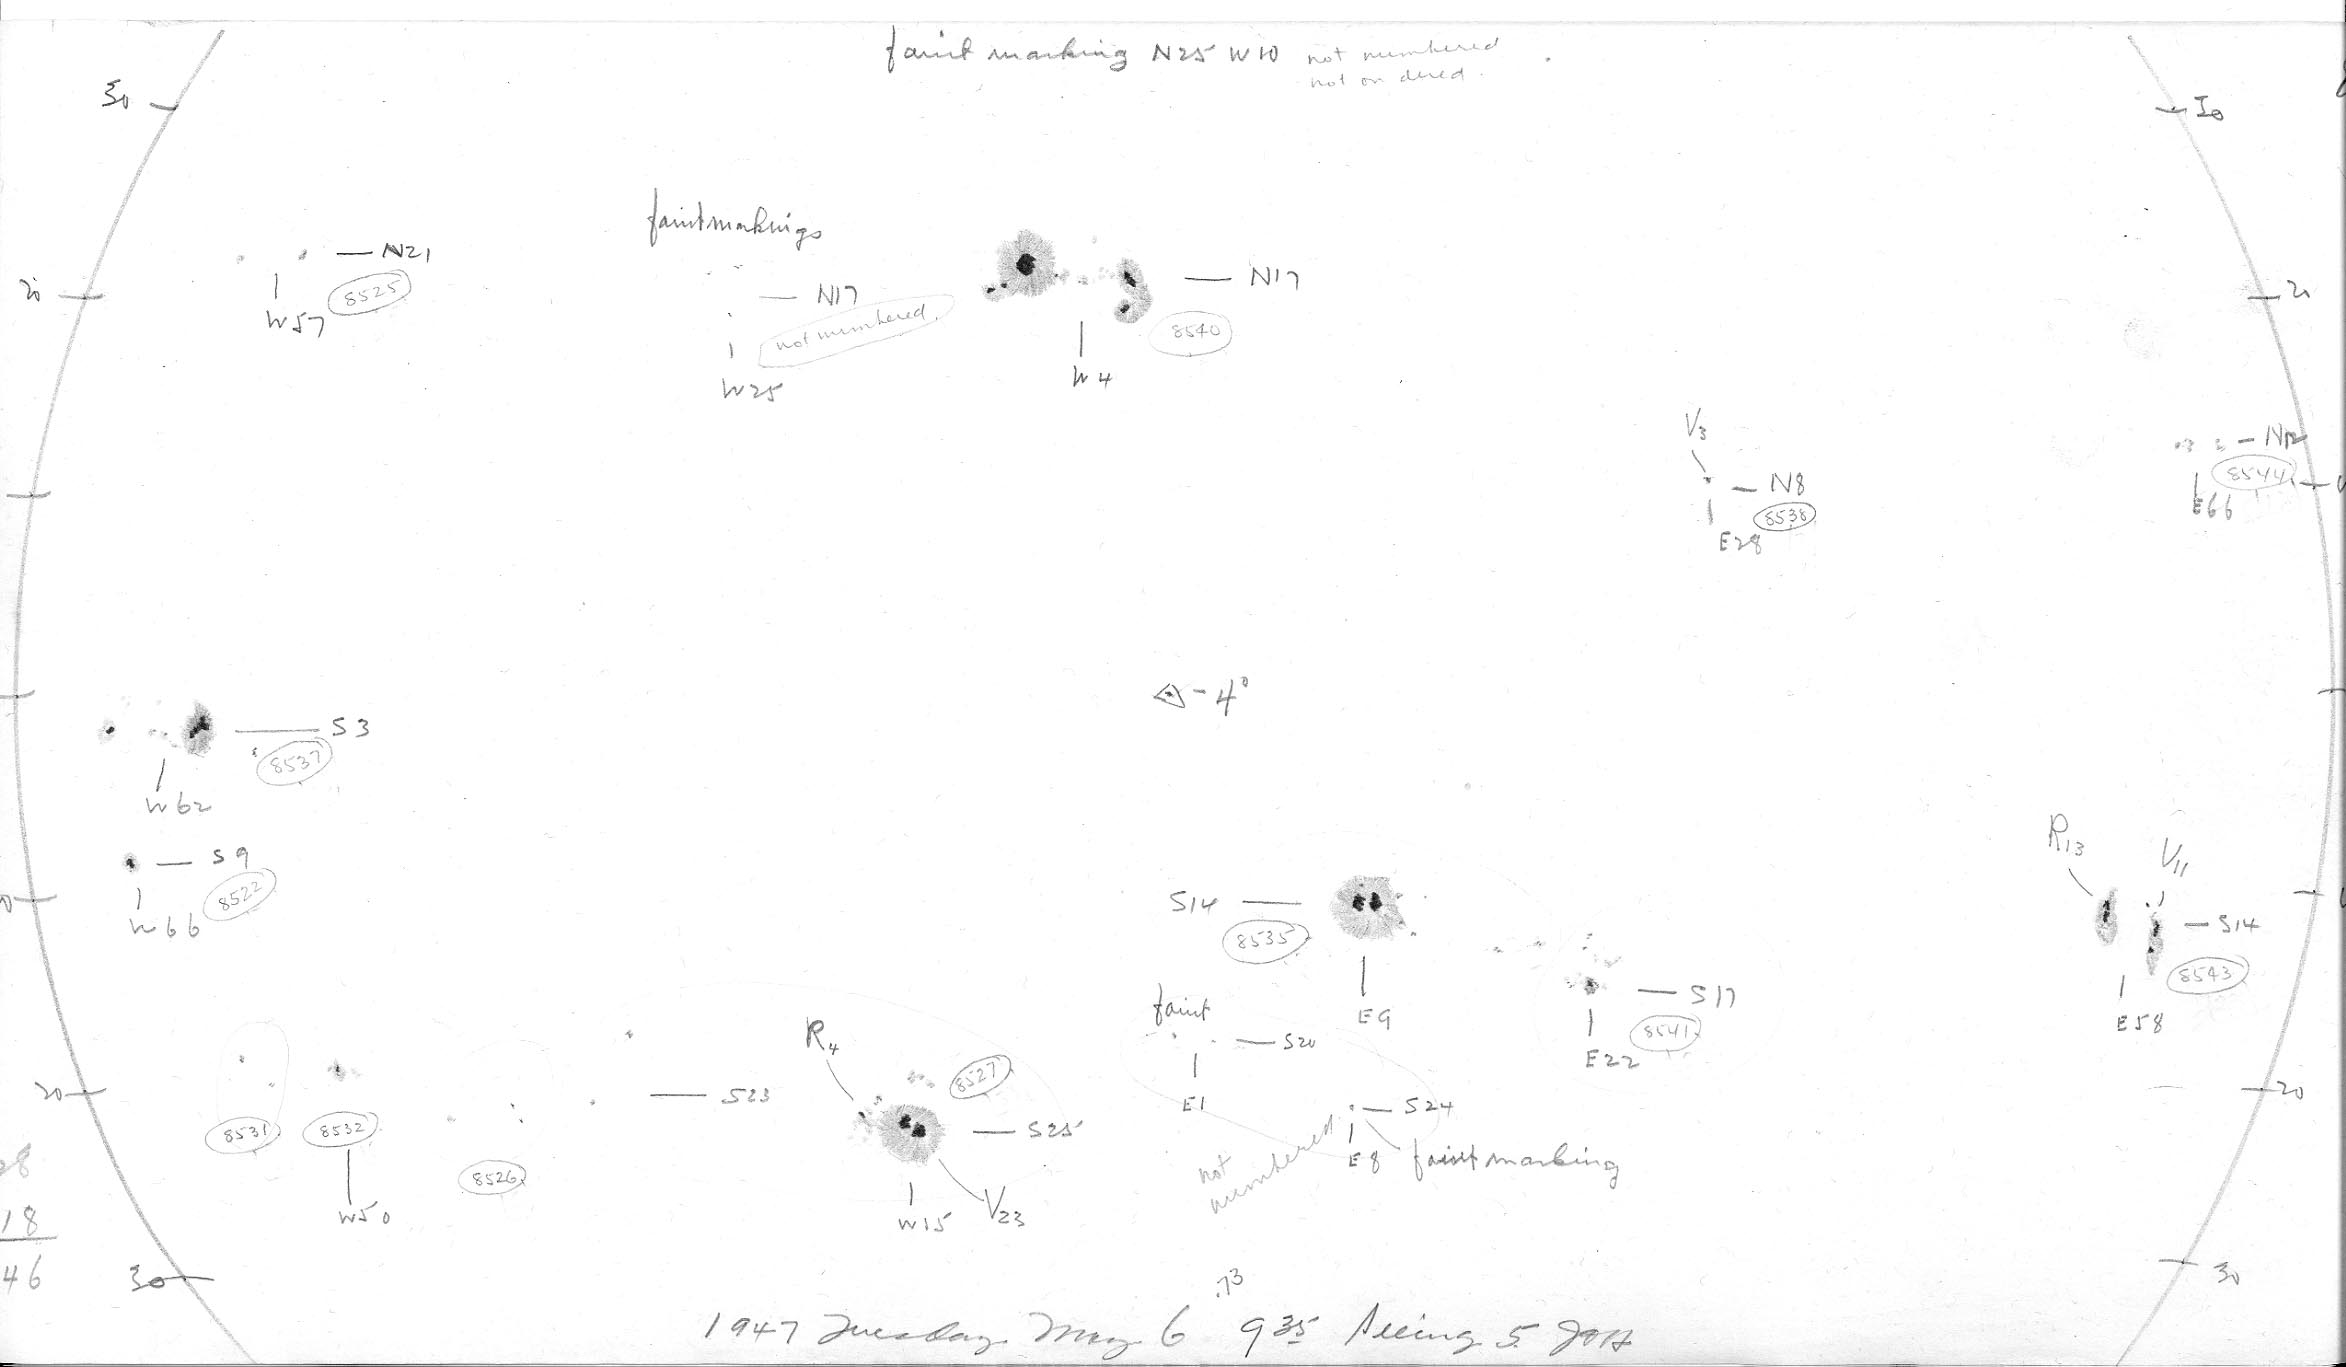 faint marking N25 W10 not numbered
not on dered.
30
30
faint markings
N21
8525
W57
20
N17
not numbered.
W25
N17
8540
W4
20
V3
N8
8538
E28
N12
8544
E66
-4°
S3
8537
W62
S9
8522
W66
0
S14
8535
E9
R13
V11
S14
8543
E58
S17
8541
E22
faint
S20
E1
R4
8527
S23
S25
W15
V23
20
8531
8532
8526
W50
S24
E8 faint marking
not
numbered
20
28
18
46
30
30
.73
1947 Tuesday May 6 9 35 Seeing 5